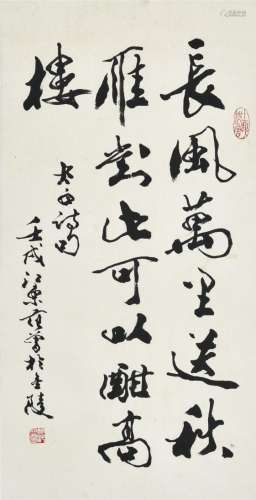 長風萬里送秋
雁對此可以酣高
樓
太白詩句
壬戌江東范曾於金陵